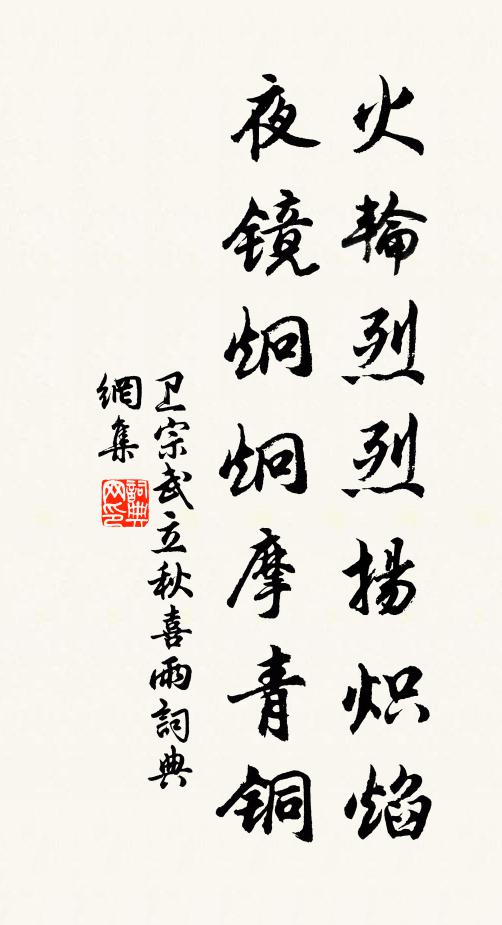 火輪烈烈揚炽焰
夜镜炯炯摩青铜
卫宗武立秋喜雨詞典
網集
詞典
网印